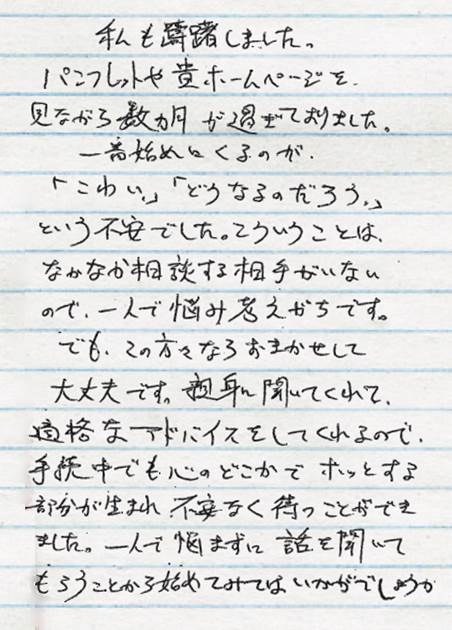 私も躊躇しました。
パンフレットや貴ホームページを、
見ながら数ヵ月が過ぎておりました。
一番始めにくるのが、
「こわい。」「どうなるのだろう。」
という不安でした。こういうことは、
なかなか相談する相手がいない
ので、一人で悩み考えがちです。
でも、この方々ならおまかせして
大丈夫です。親身に聞いてくれて、
適格なアドバイスをしてくれるので、
手続中でも心のどこかでホッとする
部分が生まれ不安なく待つことができ
ました。一人で悩まずに話を聞いて
もらうことから始めてみてはいかがでしょうか